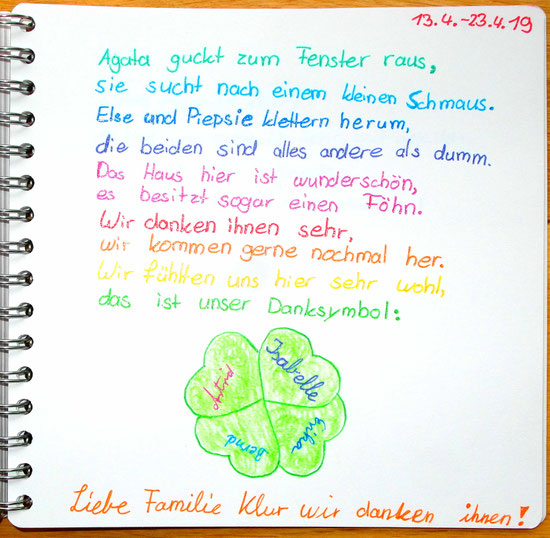 13.4.-23.4.19
Agata guckt zum Fenster raus,
sie sucht nach einem kleinen Schmaus.
Else und Piepsie klettern herum,
die beiden sind alles andere als dumm.
Das Haus hier ist wunderschön,
es besitzt sogar einen Föhn.
Wir danken ihnen sehr,
wir kommen gerne nochmal her.
Wir fühlten uns hier sehr wohl,
das ist unser Danksymbol:
Astrid
Isabelle
Bernd
Erika
Liebe Familie Klur wir danken ihnen!